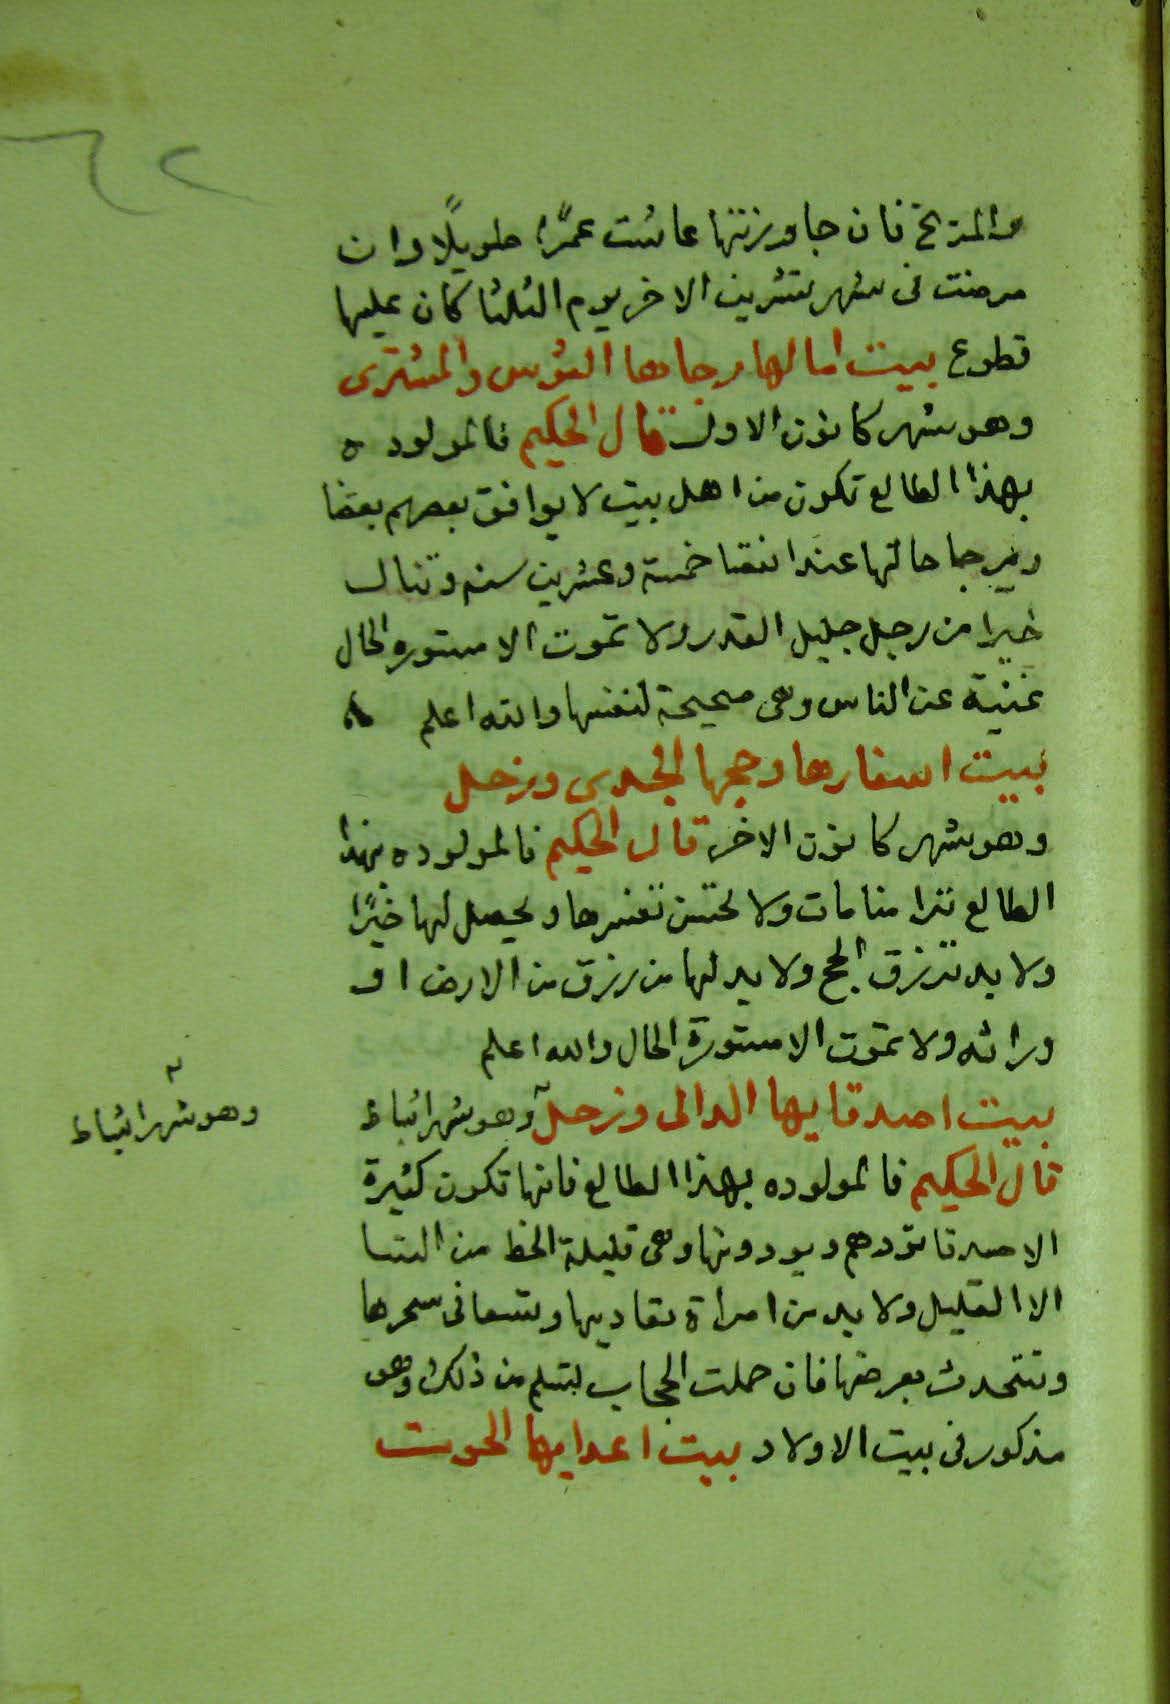 والمريخ فان جاوزتها عاشت عمرًا طويلًا وان
مرضت فى شهر تشرين الاخر يوم الثلثا كان عليها
قطوع بيت امالها ورجاها القوس والمشترى
وهو شهر كانون الاول قال الحكيم فالمولوده
بهذا الطالع تكون من اهل بيت لا يوافق بعضهم بعضا
حالتها عند خمسة وعشرين سنه وتنال
خيرا من رجل جليل القدر ولا تموت الا مستوره الحال
غنية عن الناس وهى صحيحة لنفسها والله اعلم
بيت اسفارها وحجها الجدى وزحل
وهو شهر كانون الاخر قال الحكيم فالمولوده بهذا
الطالع ترا منامات ولا تحسن تفسرها ويحصل لها خيرًا
ولا بد ترزق الحج ولا بد لها من رزق من الارض او
وراثه ولا تموت الا مستورة الحال والله اعلم
بيت اصدقايها الدالى وزحل وهو شهر اشباط
وهو شهر اشباط
قال الحكيم فالمولوده بهذا الطالع فانها تكون كثيرة
الاصدقا تودهم ويودونها وهى قليلة الحظ من النسا
الا القليل ولا بد من امراة تعاديها وتسعا فى سحرها
وتتحدث بعرضها فان حملت الحجاب تسلم من ذلك وهو
مذكور فى بيت الاولاد بيت اعدايها الحوت